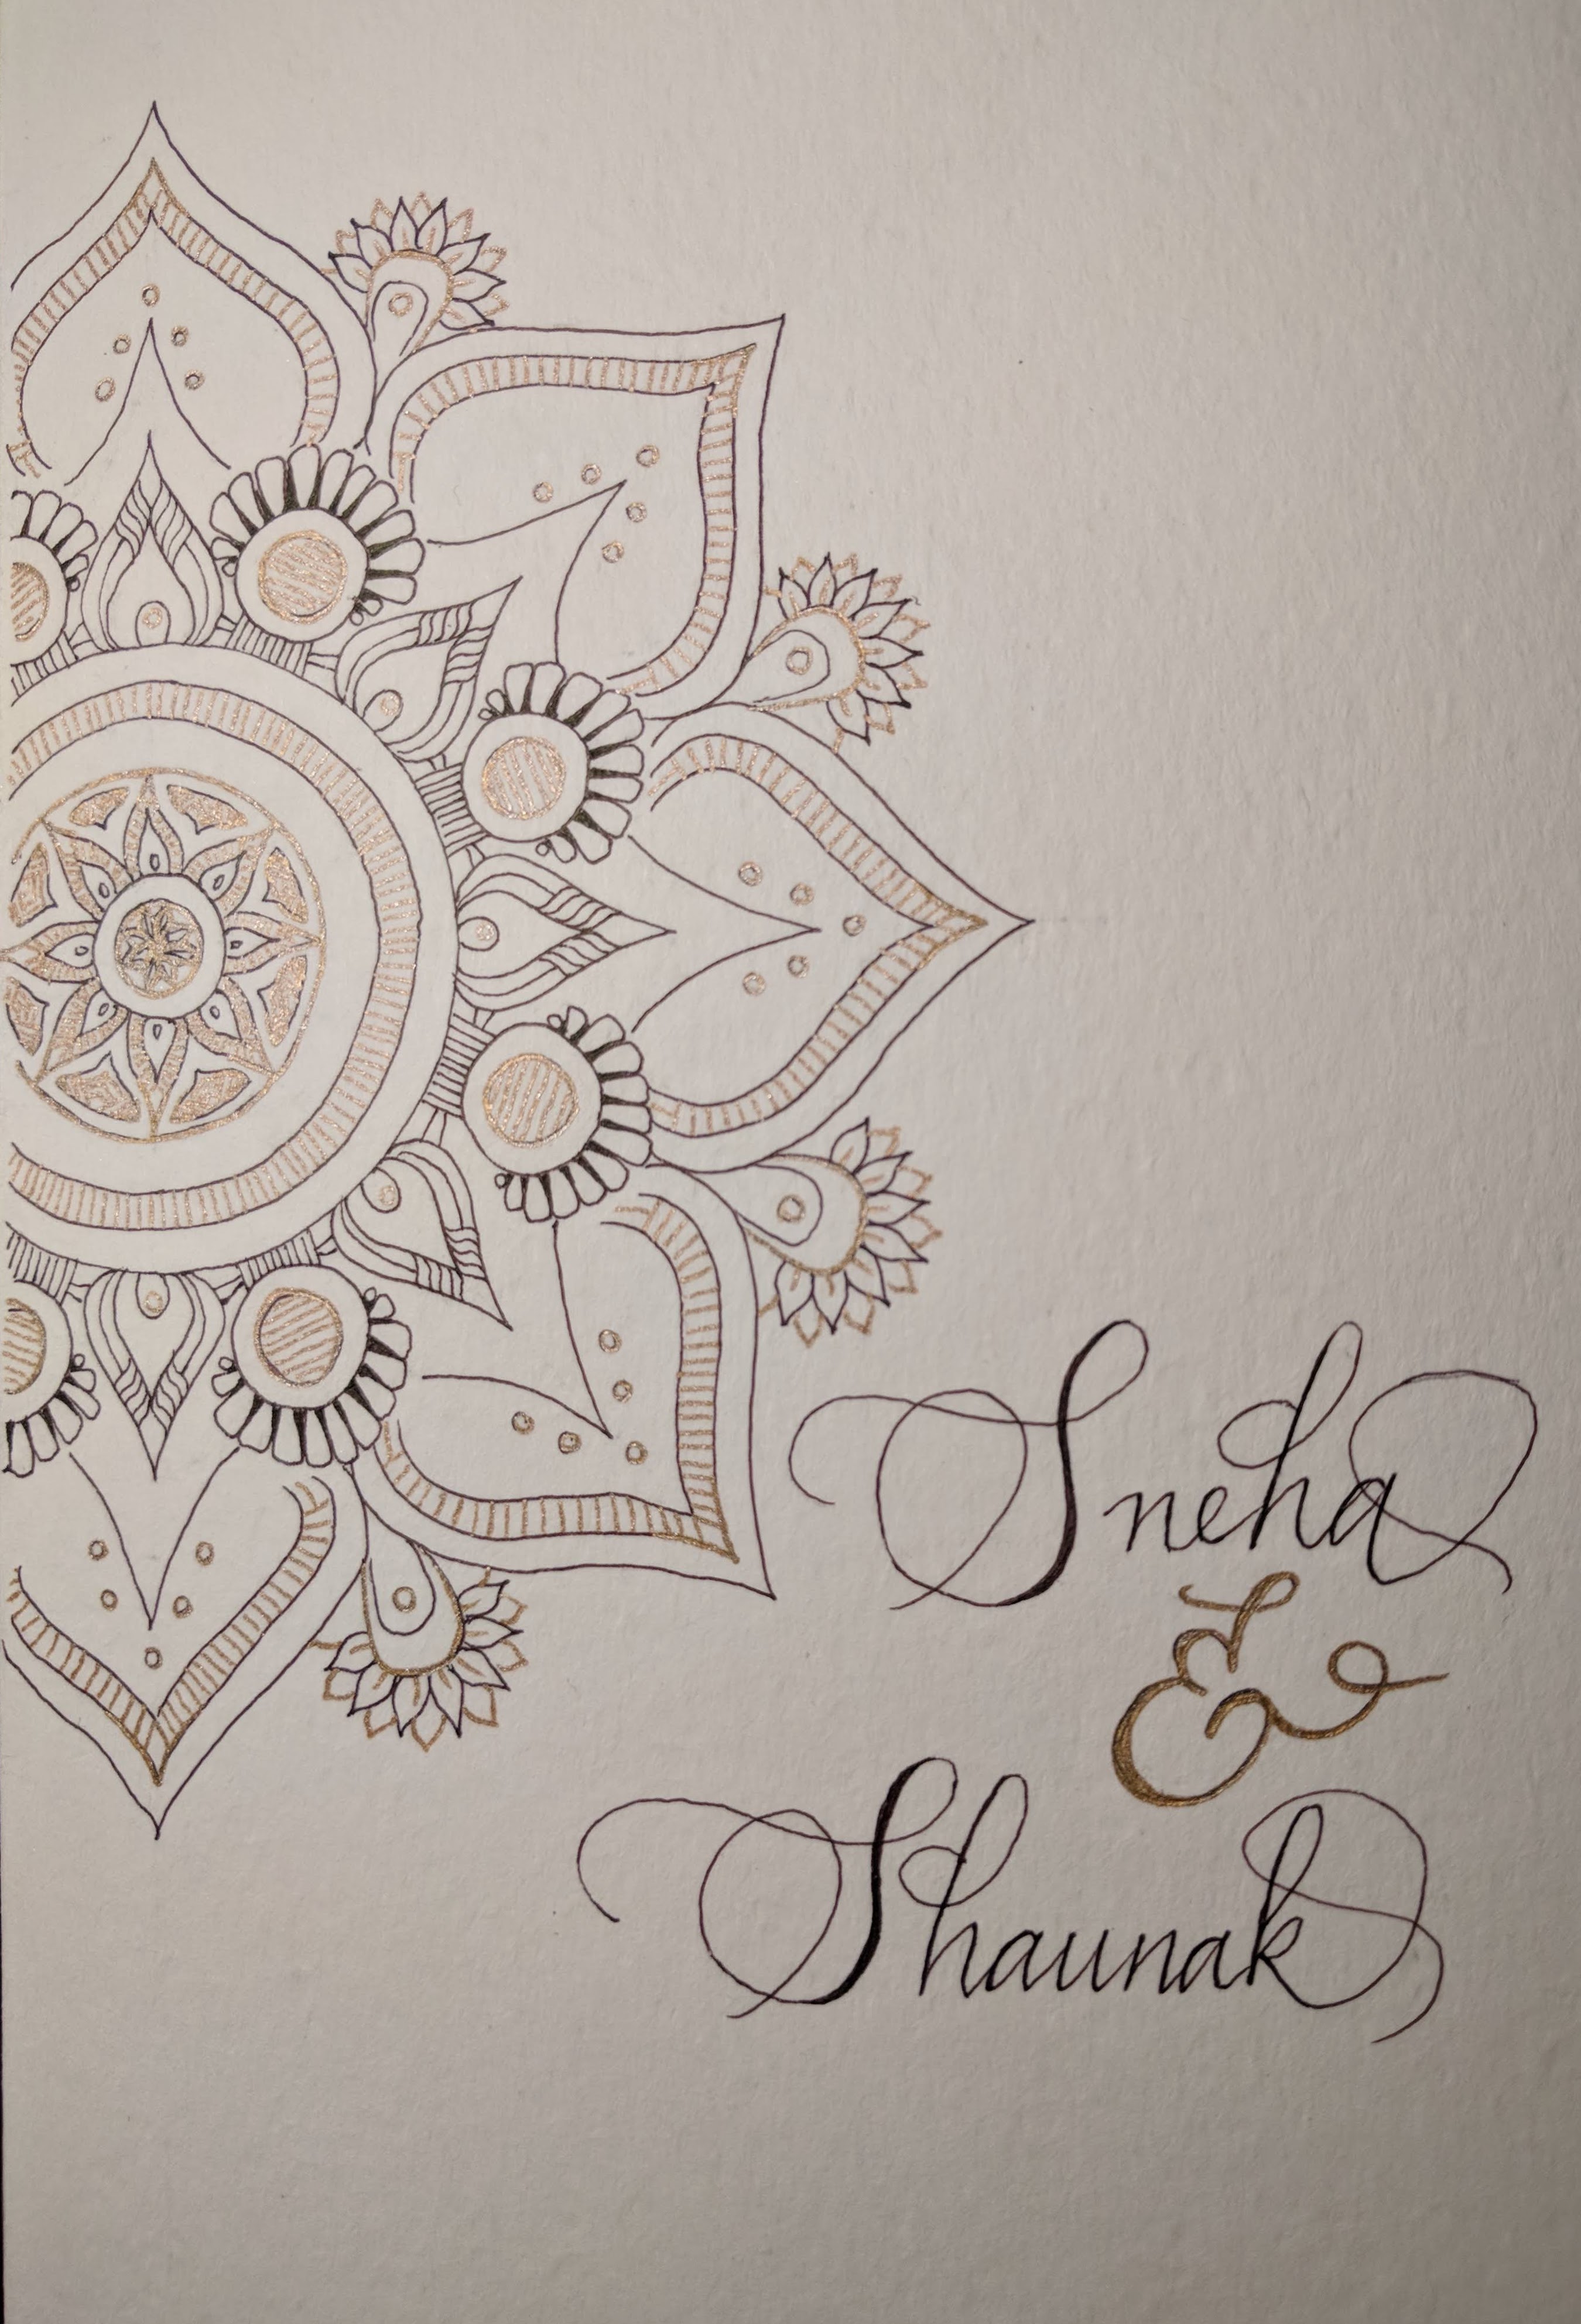 Sneha
&
Shaunak